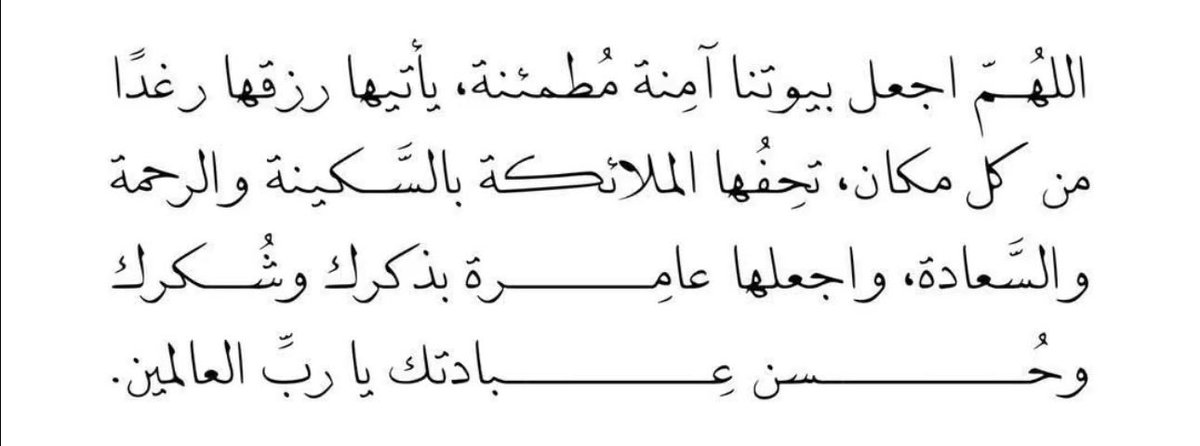 اللهُمّ اجعل بيوتنا آمِنة مُطمئنة، يأتيها رزقها رغدًا
من كل مكان، تحِفُها الملائكة بالسَّكينة والرحمة
والسَّعادة، واجعلها عامِرة بذكرك وشُكرك
وحُسن عِبادتك يا ربِّ العالمين.